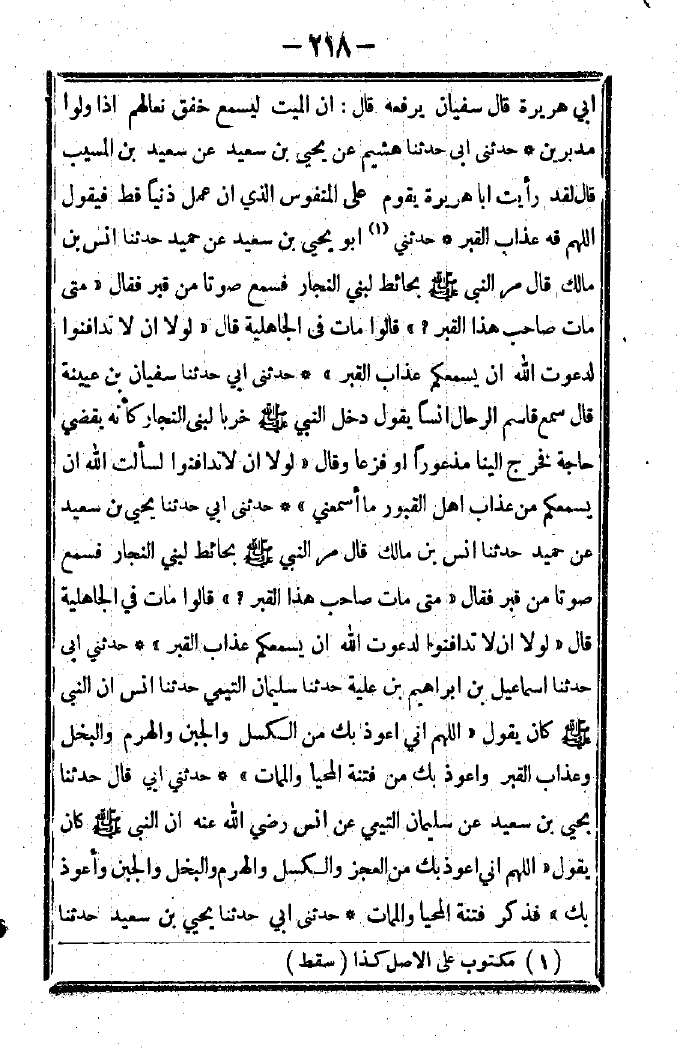 — ٢١٨ —
ابي هريرة قال سفيان يرفعه قال : ان الميت ليسمع خفق نعالهم اذا ولوا
مدبرين * حدثني ابي حدثنا هشيم عن يحيي بن سعيد عن سعيد بن المسيب
قال لقد رأيت ابا هريرة يقوم على المنفوس الذي ان عمل ذنباً قط فيقول
اللهم قه عذاب القبر * حدثني (١) ابو يحيي بن سعيد عن حميد حدثنا انس بن
مالك قال مر النبي ﷺ بحائط لبني النجار فسمع صوتا من قبر فقال « متى
مات صاحب هذا القبر ? » قالوا مات في الجاهلية قال « لولا ان لا تدافنوا
لدعوت الله ان يسمعكم عذاب القبر » * حدثني ابي حدثنا سفيان بن عيينة
قال سمع قاسم الرحال انساً يقول دخل النبي ﷺ خربا لبني النجار كأنه يقضي
حاجة فخرج الينا مذعوراً او فزعا وقال « لولا ان لا تدافنوا لسألت الله ان
يسمعكم من عذاب اهل القبور ما أسمعني » * حدثني ابي حدثنا يحيي بن سعيد
عن حميد حدثنا انس بن مالك قال مر النبي ﷺ بحائط لبني النجار فسمع
صوتا من قبر فقال « متى مات صاحب هذا القبر ? » قالوا مات في الجاهلية
قال « لولا ان لا تدافنوا لدعوت الله ان يسمعكم عذاب القبر » * حدثني ابى
حدثنا اسماعيل بن ابراهيم بن علية حدثنا سليمان التيمي حدثنا انس ان النبي
ﷺ كان يقول « اللهم اني اعوذ بك من الكسل والجبن والهرم والبخل
وعذاب القبر واعوذ بك من فتنة المحيا والمات » * حدثني ابي قال حدثنا
يحيي بن سعيد عن سليمان التيمي عن انس رضي الله عنه ان النبي ﷺ كان
يقول « اللهم اني اعوذ بك من العجز والكسل والهرم والبخل والجبن وأعوذ
بك » فذكر فتنة المحيا والمات * حدثني ابي حدثنا يحيي بن سعيد حدثنا
(١) مكتوب على الاصل كذا (سقط)